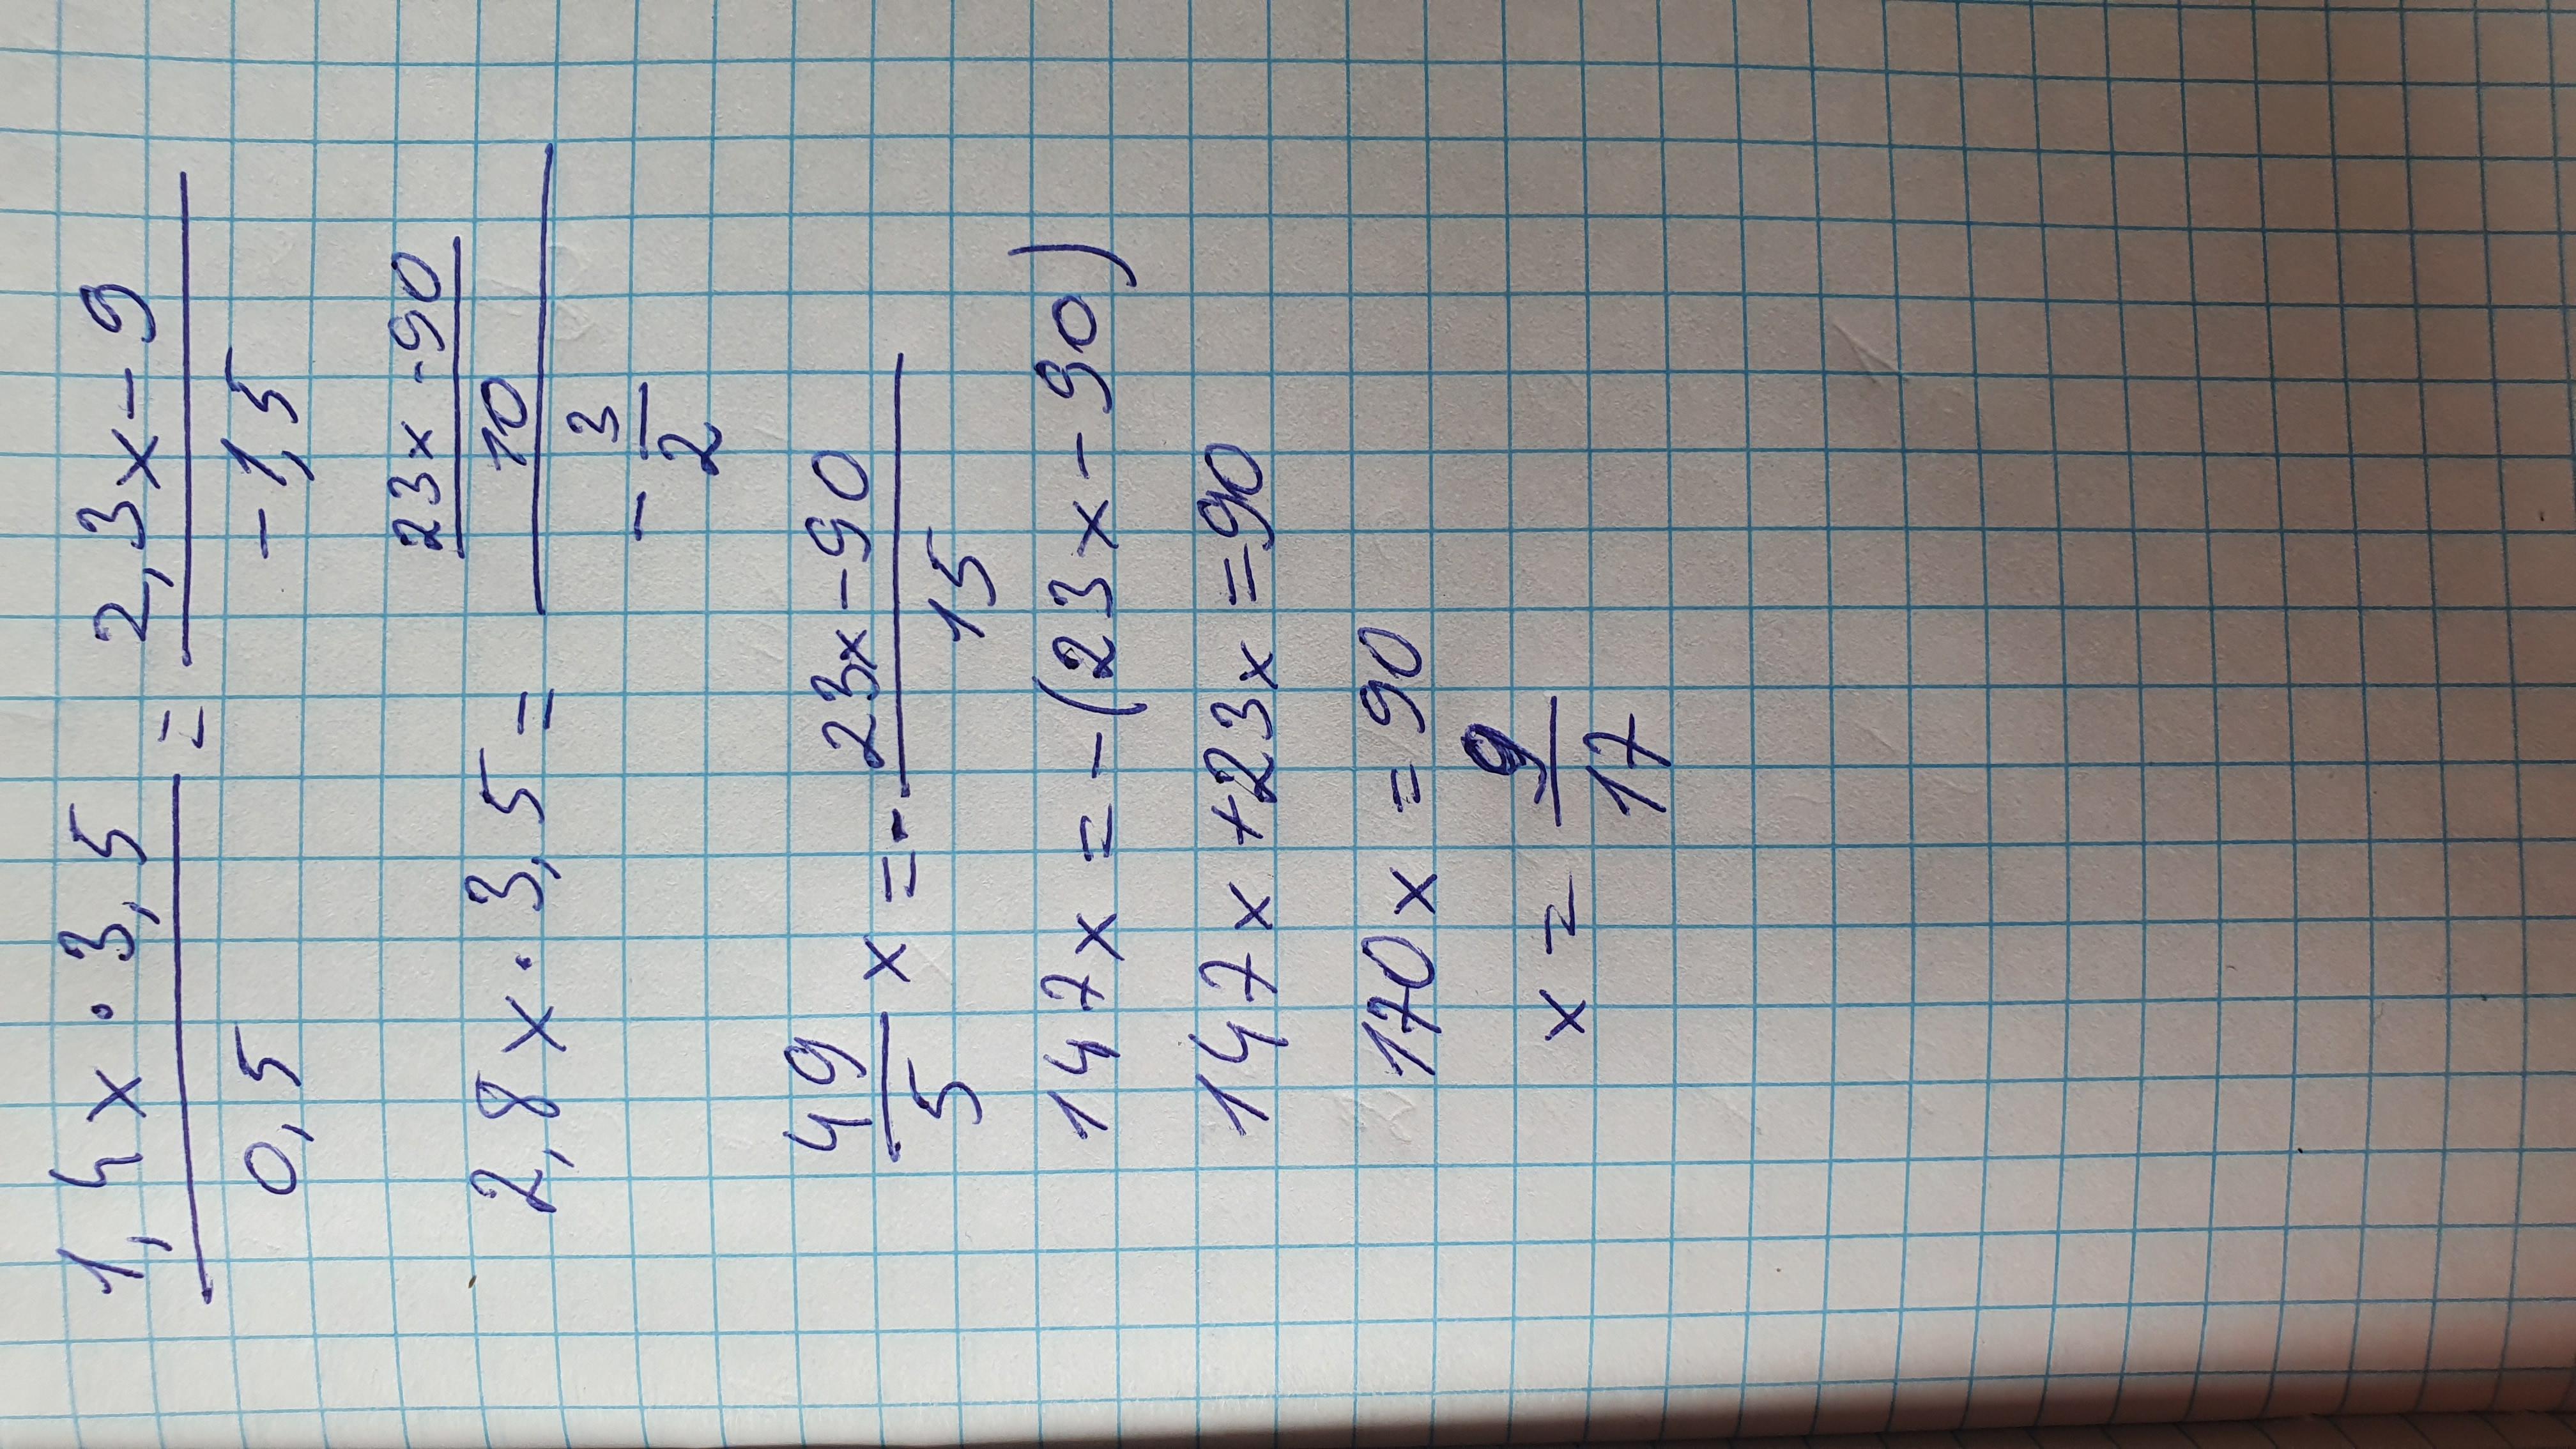 1,4x · 3,5 / 0,5 = 2,3x - 9 / -1,5
2,8x · 3,5 = 23x - 90 / 10 / - 3/2
49/5 x = - 23x - 90 / 15
147x = -(23x - 90)
147x + 23x = 90
170x = 90
x = 9/17